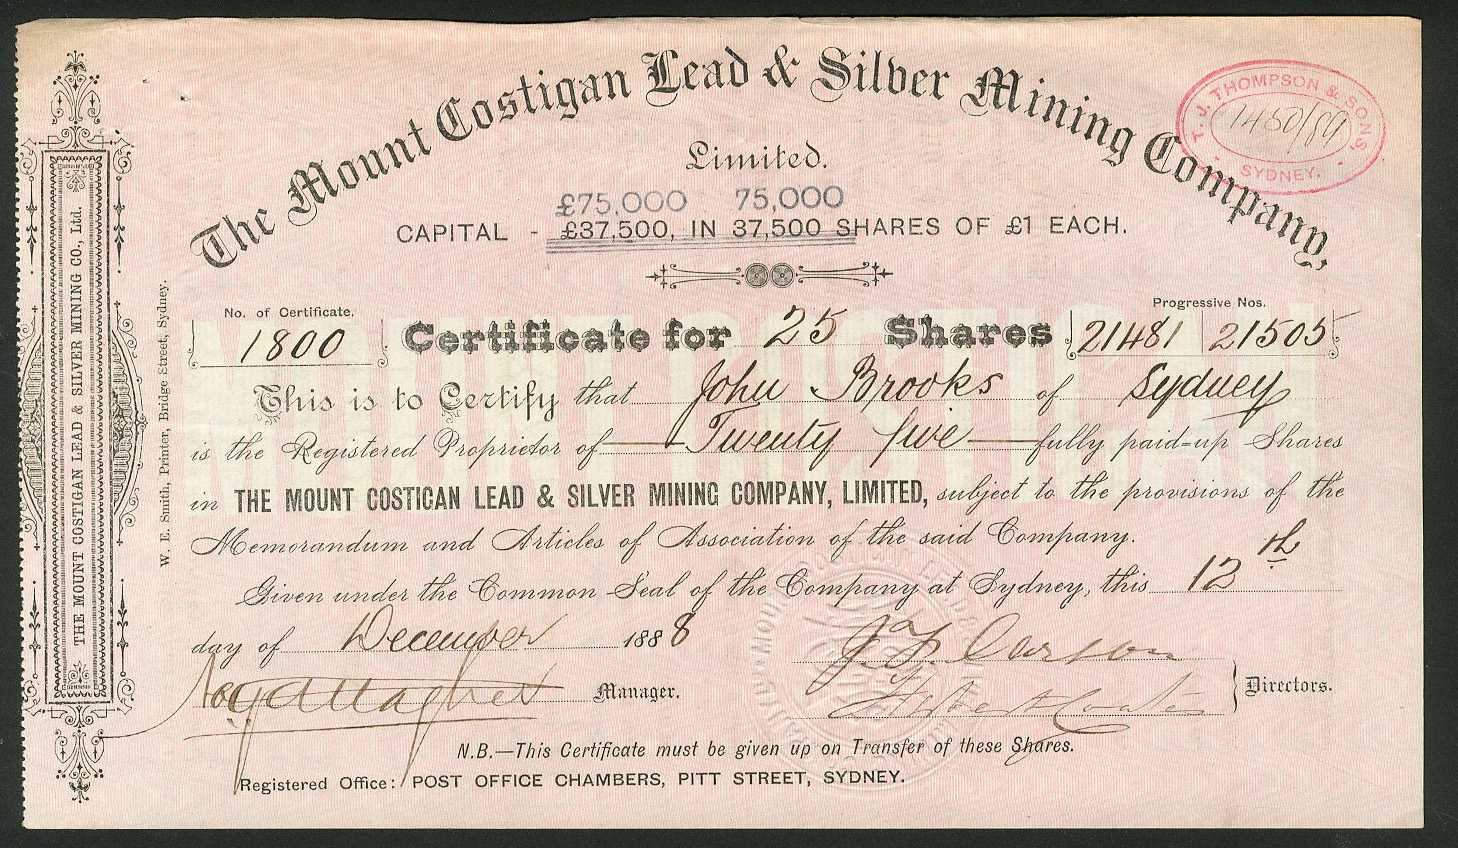 The Mount Costigan Lead & Silver Mining Company,
Limited.
T. J. THOMPSON & SONS,
1450/89
SYDNEY.
£75,000 75,000
CAPITAL - £37,500, IN 37,500 SHARES OF £1 EACH.
No. of Certificate. Progressive Nos.
1800 Certificate for 25 Shares 21481 21505
This is to Certify that John Brooks of Sydney
is the Registered Proprietor of Twenty five fully paid-up Shares
in THE MOUNT COSTIGAN LEAD & SILVER MINING COMPANY, LIMITED, subject to the provisions of the
Memorandum and Articles of Association of the said Company.
Given under the Common Seal of the Company at Sydney, this 12th
day of December 1888
Manager.
Directors.
N.B.—This Certificate must be given up on Transfer of these Shares.
Registered Office: POST OFFICE CHAMBERS, PITT STREET, SYDNEY.
THE MOUNT COSTIGAN LEAD & SILVER MINING CO., Ltd.
W. E. Smith, Printer, Bridge Street, Sydney.